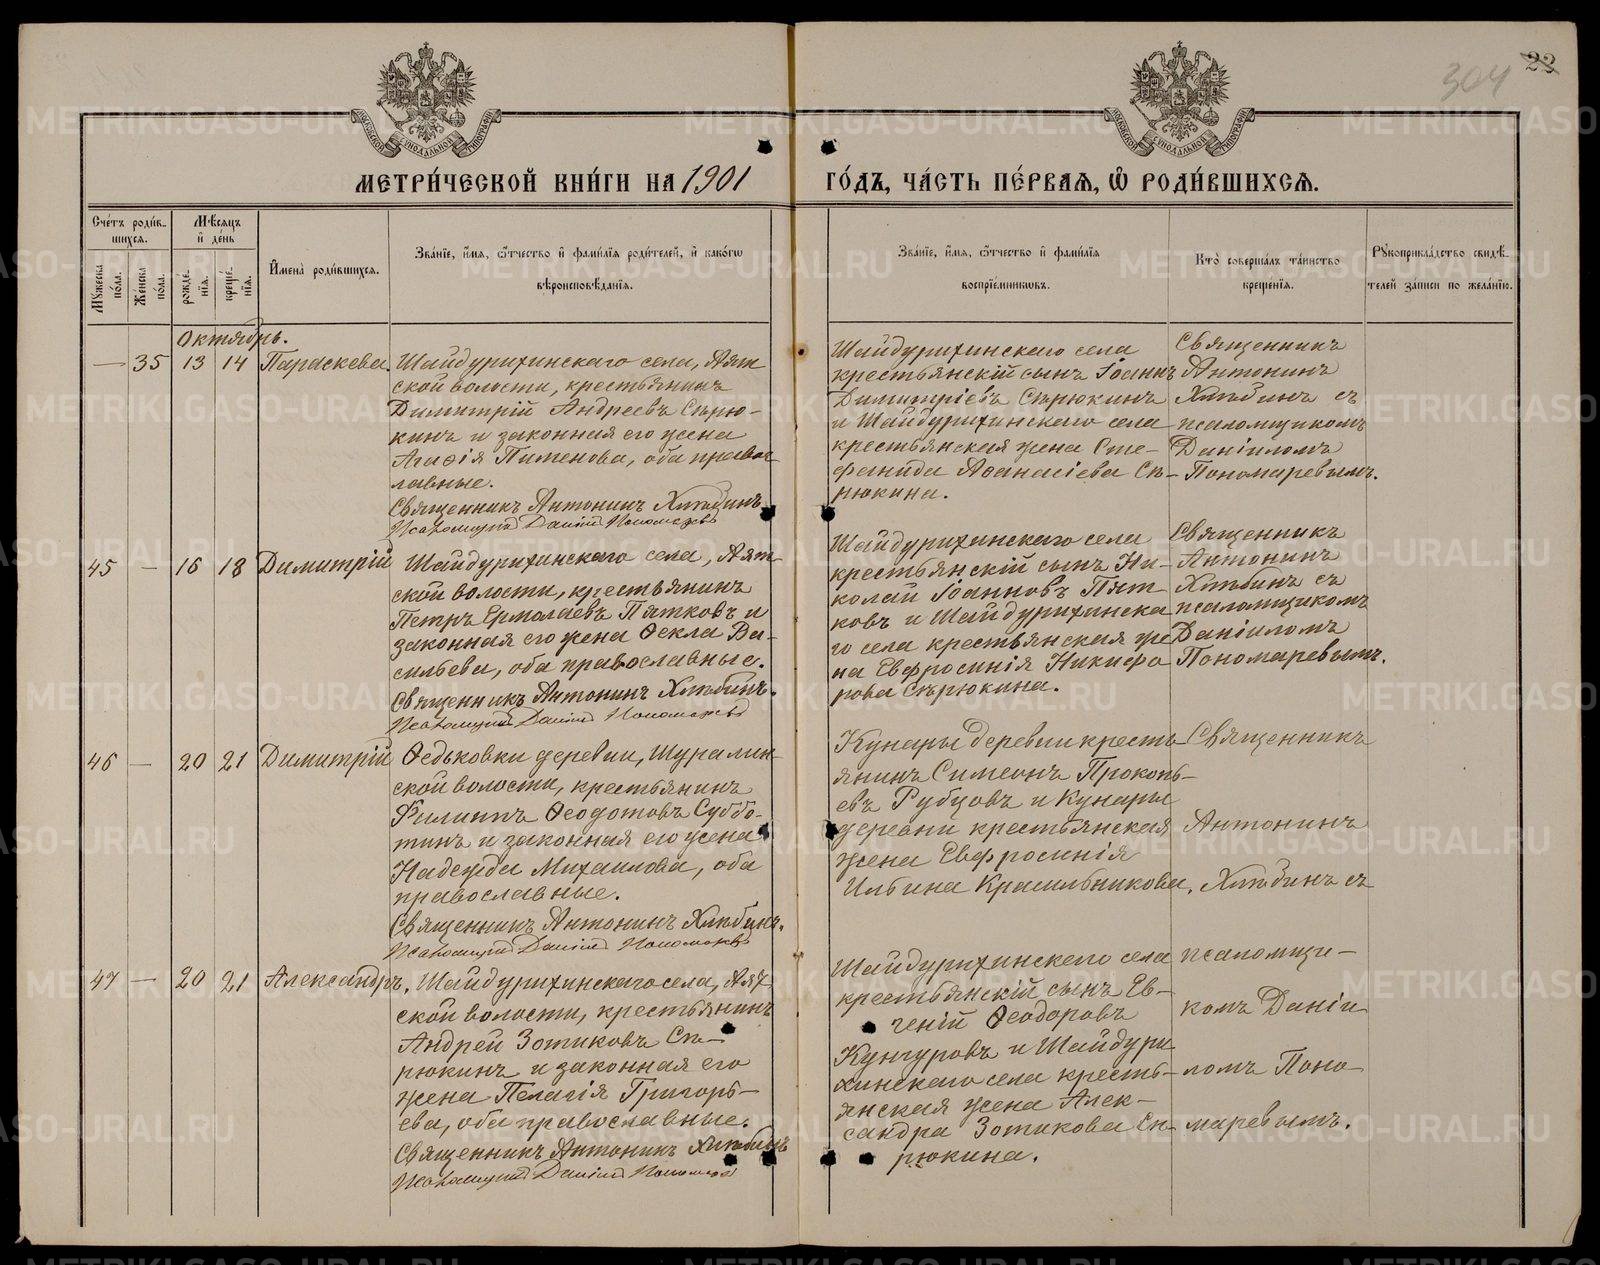 304
22
МЕТРИ́ЧЕСКОЙ КНИ́ГИ НА 1901
ГО́ДЪ, ЧА́СТЬ ПЕ́РВАѦ, Ѽ РОДИ́ВШИХСѦ.
Сче́тъ роди́в-
шихсѧ.
Мꙋжеска
по́ла.
Же́нска
по́ла.
Мѣ́сѧцъ
и҆ де́нь
рожде́-
нїѧ.
креще́-
нїѧ.
И҆мена̀ роди́вшихсѧ.
Зва́нїе, и҆́мѧ, ѻ҆́тчество и҆ фами́лїѧ роди́телей, и҆ како́гѡ
вѣроисповѣ́данїѧ.
Зва́нїе, и҆́мѧ, ѻ҆́тчество и҆ фами́лїѧ
воспрїе́мникѡвъ.
Кто̀ соверша́лъ та́инство
креще́нїѧ.
Рꙋкоприкла́дство свидѣ́-
телей за́писи по жела́нїю.
Октябрь.
— 35 13 14 Параскева.
Шайдурихинскаго села, Аят
ской волости, крестьянинъ
Димитрій Андреевъ Сѣрю-
кинъ и законная его жена
Агафія Пименова, оба правос
лавные.
Священникъ Антонинъ Хлѣбинъ
Псаломщикъ Даніилъ Пономаревъ
Шайдурихинскаго села
крестьянскій сынъ Іоаннъ
Димитріевъ Сѣрюкинъ
и Шайдурихинскаго села
крестьянская жена Сте-
фанида Аѳанасіева Сѣ-
рюкина.
Священникъ
Антонинъ
Хлѣбинъ съ
псаломщикомъ
Даніиломъ
Пономаревымъ.
45 — 16 18 Димитрій
Шайдурихинскаго села, Аят-
ской волости, крестьянинъ
Петръ Ермолаевъ Пятковъ и
законная его жена Ѳекла Ва-
сильева, оба православные.
Священникъ Антонинъ Хлѣбинъ.
Псаломщикъ Даніилъ Пономаревъ
Шайдурихинскаго села
крестьянскій сынъ Ни-
колай Іоанновъ Пят-
ковъ и Шайдурихинска
го села крестьянская же
на Евфросинія Никифо
рова Сѣрюкина.
Священникъ
Антонинъ
Хлѣбинъ съ
псаломщикомъ
Даніиломъ
Пономаревымъ.
46 — 20 21 Димитрій
Ѳедьковки деревни, Шуралин-
ской волости, крестьянинъ
Филиппъ Ѳеодотовъ Суббо-
тинъ и законная его жена
Надежда Михаилова, оба
православные.
Священникъ Антонинъ Хлѣбинъ.
Псаломщикъ Даніилъ Пономаревъ
Кунары деревни кресть-
янинъ Симеонъ Прокопь-
евъ Рубцовъ и Кунары
деревни крестьянская
жена Евфросинія
Ильина Красильникова.
Священникъ
Антонинъ
Хлѣбинъ съ
47 — 20 21 Александръ.
Шайдурихинскаго села, Аят
ской волости, крестьянинъ
Андрей Зотиковъ Сѣ-
рюкинъ и законная его
жена Пелагія Григорь-
ева, оба православные.
Священникъ Антонинъ Хлѣбинъ
Псаломщикъ Даніилъ Пономаревъ
Шайдурихинскаго села
крестьянскій сынъ Ев-
геній Ѳеодоровъ
Кунгуровъ и Шайдури
хинскаго села кресть-
янская жена Алек-
сандра Зотикова Сѣ-
рюкина.
псаломщи-
комъ Даніи
ломъ Поно-
маревымъ.
METRIKI.GASO-URAL.RU